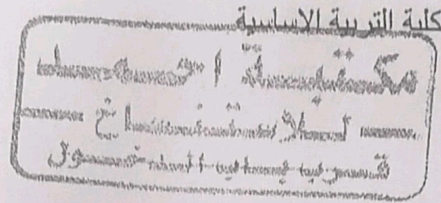 كلية التربية الاساسية
مكتبة احمد
للاستنساخ
قرب